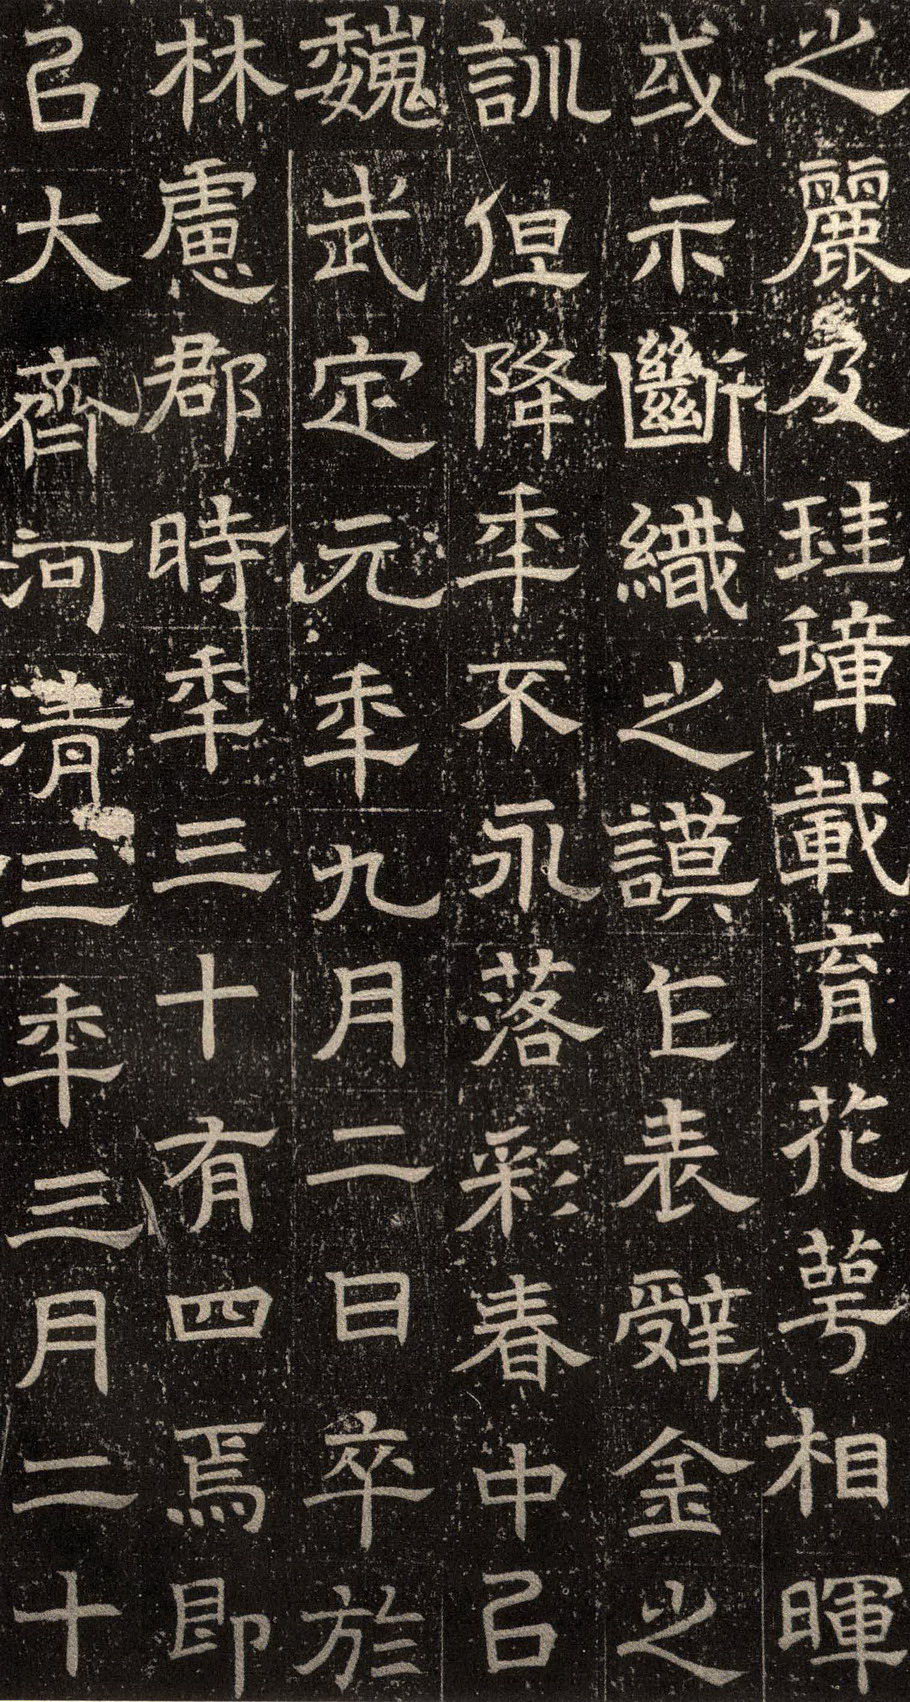 之麗及珪璋載育花萼相暉
或示斷織之謨乍表辤金之
訓但降年不永落彩春中以
魏武定元年九月二日卒於
林慮郡時年三十有四焉即
以大齊河清三年三月二十